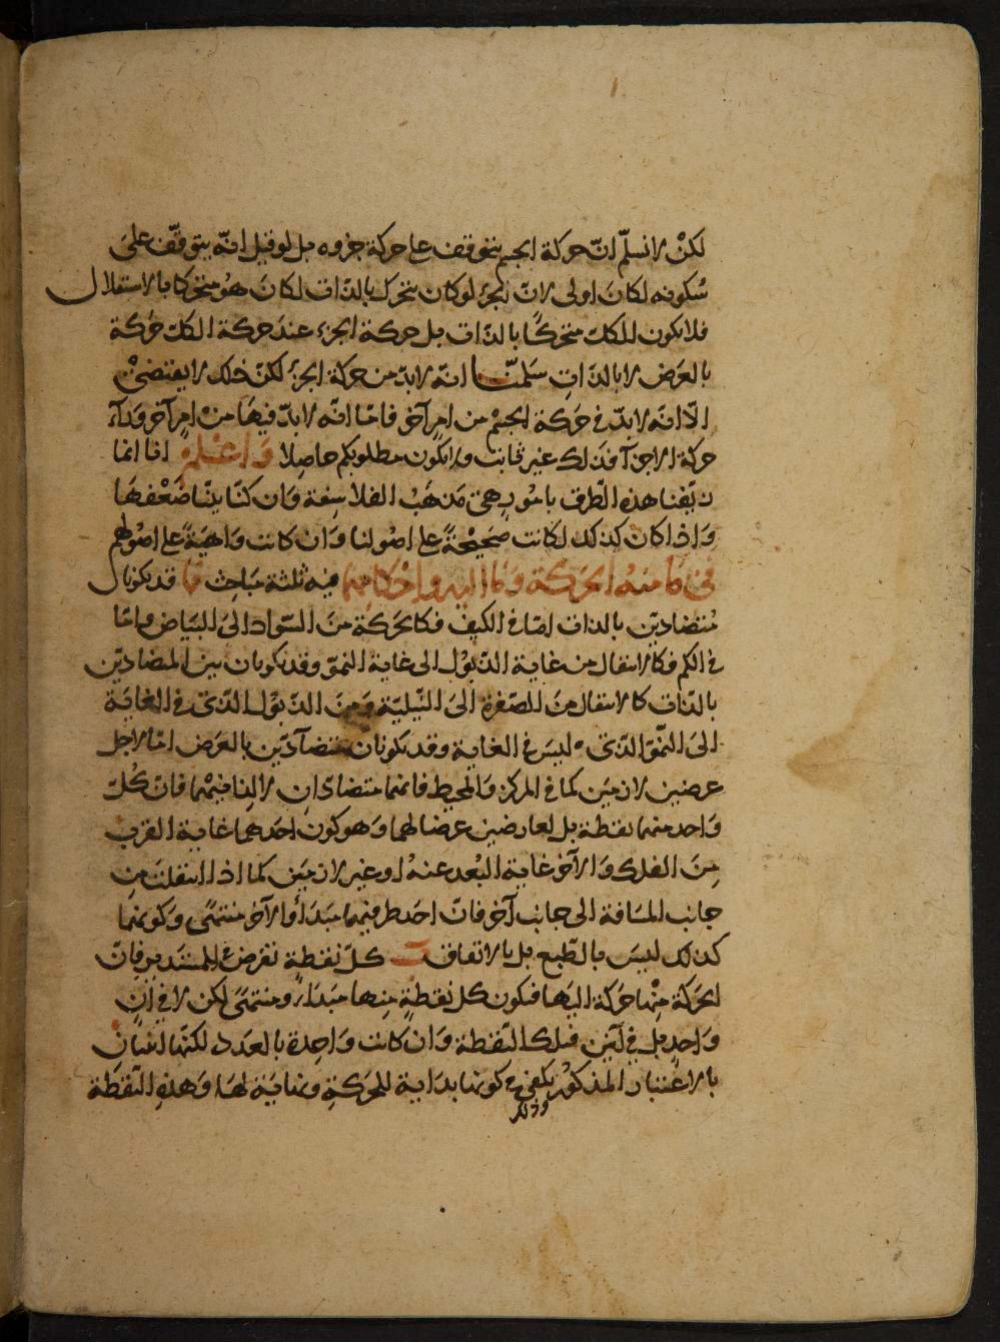 لكنْ لا نسلّم انّ حركة الجسم يتوقف على حركة جزوه بل لو قيل انّه يتوقّف على
سُكونه لكان اولى لانّ الجزء لو كان يتحرك بالذات لكان هو متحركا بالاستقلال
فلا يكون للكل متحركًا بالذات بل حركة الجزء عند حركة الكل حركة
بالعرض لا بالذات سلّمنا انّه لا بدّ من حركة الجزء لكنّ ذلك لا يقتضى
الّا انّه لا بدّ فى حركة الجسْم من امرٍ آخر فامّا انّه لا بدّ فيها من امرٍ آخر وراء
حركة الاجزآء فذلك غير ثابت ولا يكون مطلوبكم حاصلا واعْلم انا انما
زيّفنا هذه الطرق باسْرِهِ على مذهَب الفلاسفة وان كنّا بيّنا ضعْفها
واذا كان كذلك لكانت صحيْحةً على اصُولنا وان كانت واهيةً على اصُولهم
فى ما منه الحركة وما اليه واحكامهما فيه ثلثة مباحث آ قد يكونان
مُتضادين بالذات امّا فى الكيف فكالحركة من السّواد الى البياض وامّا
فى الكم فكالانتقال من غاية الذّبول الى غاية النموّ وقد يكونان بين المتضادين
بالذّات كالانتقال من الصّفرة الى النّيليّة ومن الذّبول الذى فى الغاية
الى النّموّ الذى ليس فى الغاية وقد يكونان متضآدّين بالعرض امّا لاجل
عرضين لازمين كما فى المركز والمحيط فانهما متضادّان لا لذاتيْهما فانّ كلّ
واحد منهما نقطة بل لعارضين عرضا لهما وهو كون احدهما غاية القرب
من الفلك والآخر غاية البُعد عنه او غير لازمين كما اذا انتقل من
جانب المسافة الى جانب آخر فانّ احد طرفيها مبدأ والآخر منتهًى وكونهما
كذلك ليس بالطّبع بل بالاتفاق ب كلّ نقطة تفرض فى المستدير فانّ
الحركة منْها حركة اليها فيكون كل نقطة منها مبدأ ومنتهى لكن لا فى آنٍ
واحدٍ بل فى آنَين فتلك النّقطة وان كانت واحدة بالعدد لكنّها اثنان
بالاعْتبار المذكور يكفى فى كونها بداية للحركة ونهاية لها وهذه النّقطة
وذلك